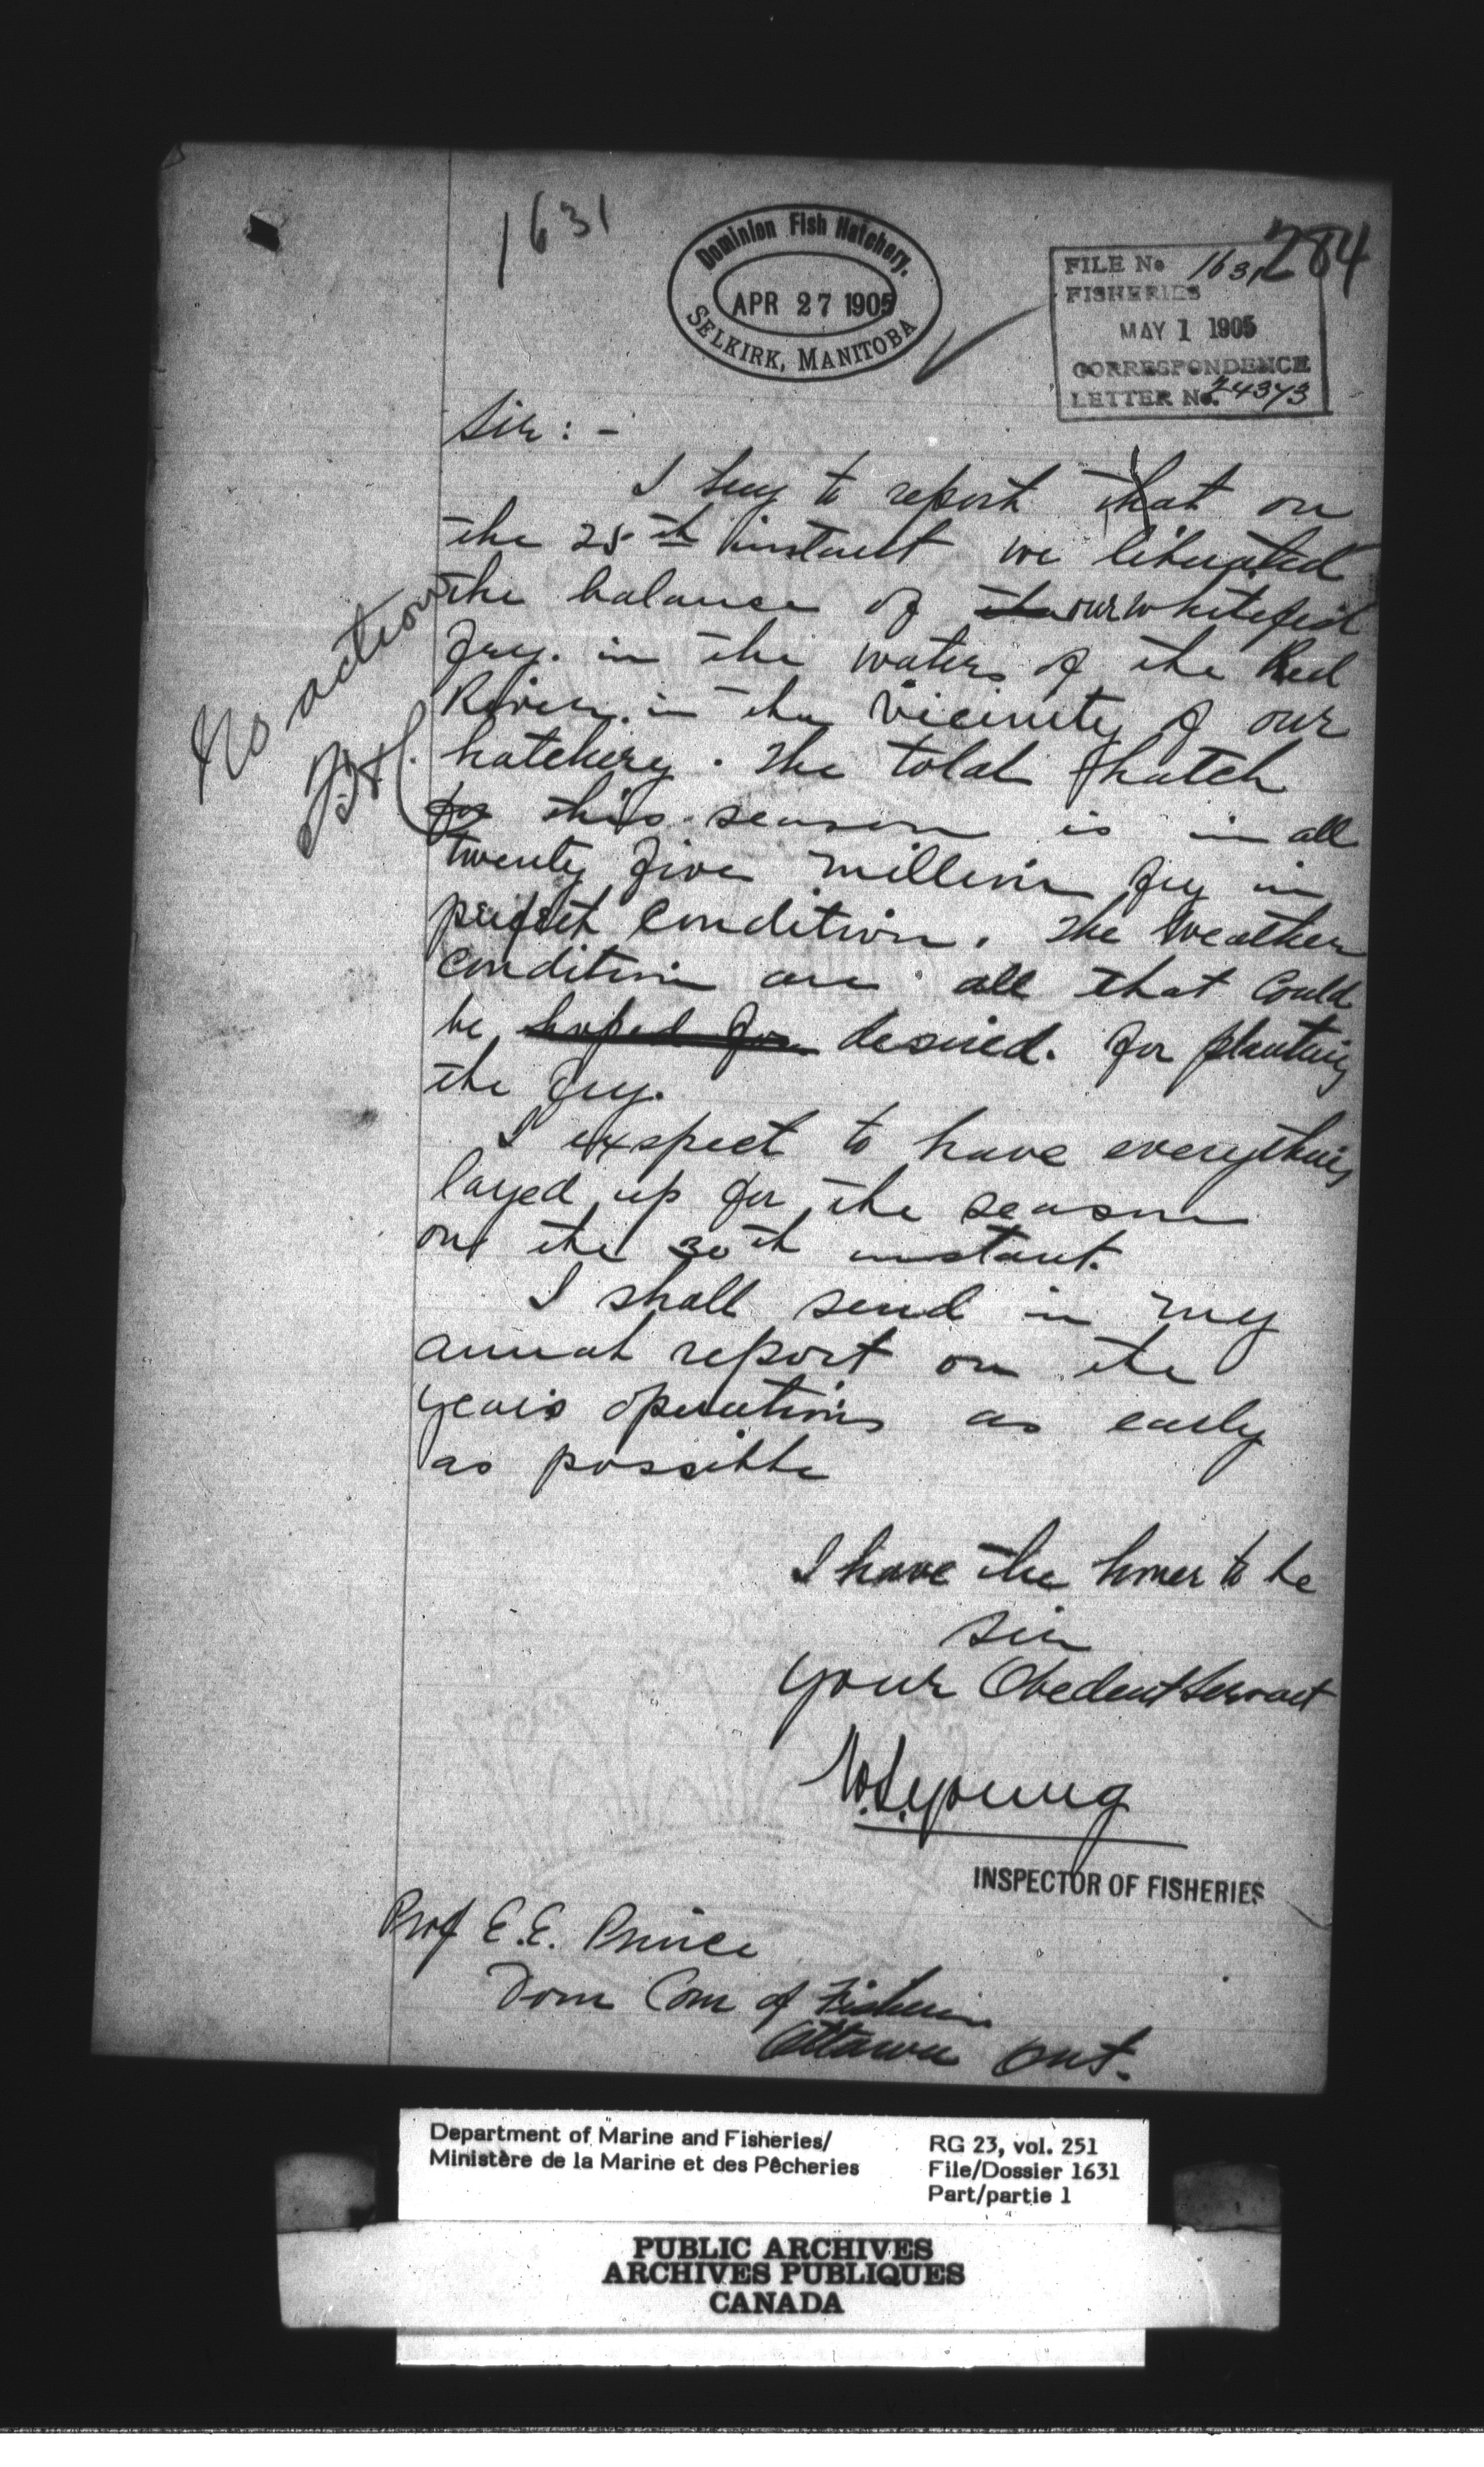 1631
Dominion Fish Hatchery.
APR 27 1905
SELKIRK, MANITOBA
284
FILE No 1631
FISHERIES
MAY 1 1905
CORRESPONDENCE
LETTER No. 24373
Sir : -
I beg to report that on
the 25th instant we liberated
the balance of the our whitefish
fry. in the waters of the Red
River. in the vicinity of our
hatchery. The total hatch
for this season is in all
twenty five million fry in
perfect condition. The weather
condition are all that could
be hoped for desired. for planting
the fry.
I expect to have everything
layed up for the season
on the 30th instant.
I shall send in my
annual report on the
years operations as early
as possible
No action
I have the honer to be
Sir
your Obedent Servant
W.S. Young
INSPECTOR OF FISHERIES
Prof E.E. Prince
Dom Com of Fisheries
Ottawa Ont.
Department of Marine and Fisheries/
Ministère de la Marine et des Pêcheries
RG 23, vol. 251
File/Dossier 1631
Part/partie 1
PUBLIC ARCHIVES
ARCHIVES PUBLIQUES
CANADA